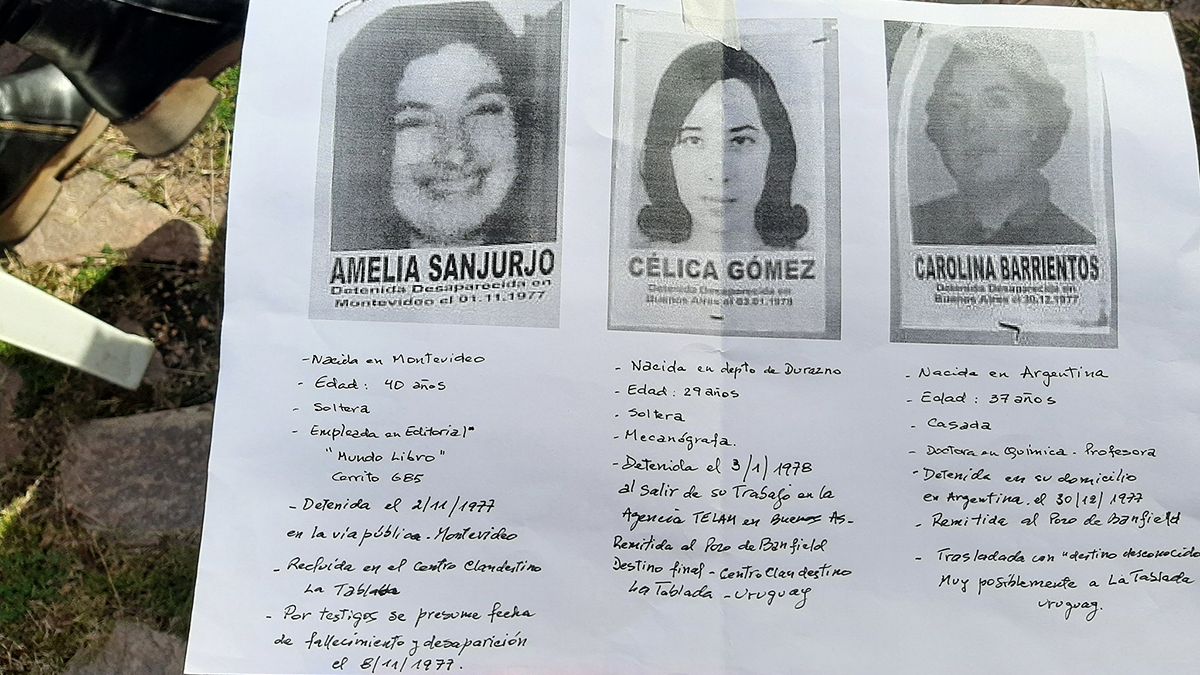 AMELIA SANJURJO
Detenida Desaparecida en
Montevideo el 01.11.1977
- Nacida en Montevideo
- Edad: 40 años
- Soltera
- Empleada en Editorial"
"Mundo Libro"
Cerrito 685
- Detenida el 2/11/1977
en la vía pública - Montevideo
- Recluída en el Centro Clandestino
La Tablada
- Por testigos se presume fecha
de fallecimiento y desaparición
el 8/11/1977.
CÉLICA GÓMEZ
Detenida Desaparecida en
Buenos Aires el 03.01.1978
- Nacida en depto de Durazno
- Edad: 29 años
- Soltera
- Mecanógrafa.
- Detenida el 3/1/1978
al salir de su Trabajo en la
Agencia TELAM en Buenos As-
Remitida al Pozo de Banfield
Destino final - Centro Clandestino
La Tablada - Uruguay
CAROLINA BARRIENTOS
Detenida Desaparecida en
Buenos Aires el 30.12.1977
- Nacida en Argentina
- Edad: 37 años
- Casada
- Doctora en Química - Profesora
- Detenida en su domicilio
en Argentina. el 30/12/1977
- Remitida al Pozo de Banfield
- Trasladada con "destino desconocido
Muy posiblemente a La Tablada
Uruguay.